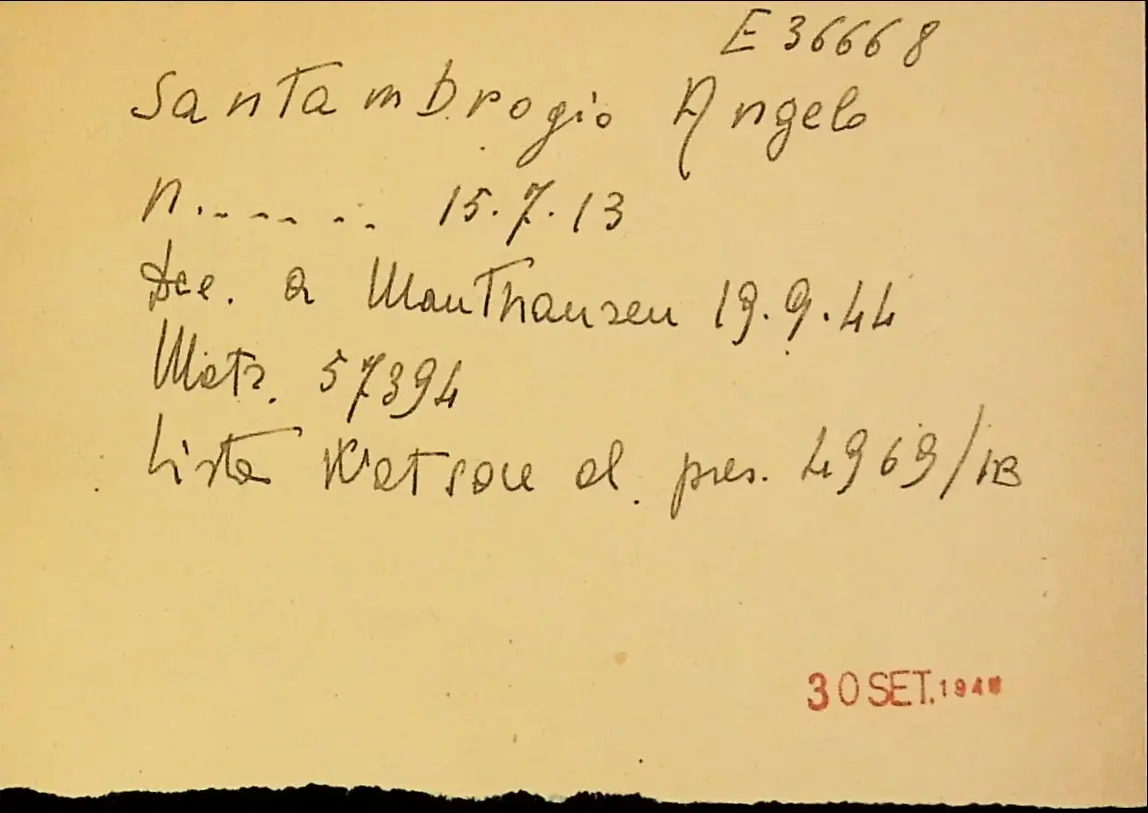 E 36668
Santambrogio Angelo
n. - - - - . . 15.7.13
Dec. a Mauthausen 19.9.44
Matr. 57394
Lista Watson al. pres. 4969/IB
30 SET. 194